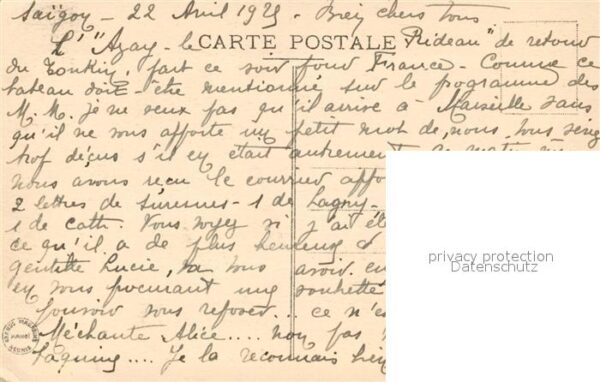 Saïgon - 22 Avril 1925. Bien chers tous
L'"Azay-le-Rideau" de retour
CARTE POSTALE
du Tonkin, part ce soir pour France - Comme ce
bateau doit-être mentionné sur le programme des
M.M. je ne veux pas qu'il arrive à Marseille sans
qu'il ne vous apporte un petit mot de nous. Vous seriez
trop déçus s'il en était autrement. Ce matin
nous avons reçu le courrier
2 lettres de Suresnes - 1 de Lagny -
1 de Cath. Vous voyez si j'ai
ce qu'il a de plus heureux &
gentille Lucie, va vous avoir
en vous procurant
pouvoir vous reposer... ce n'
Méchante Alice.... non pas
taquine.... Je la reconnais bien
privacy protection
Datenschutz
HANOI